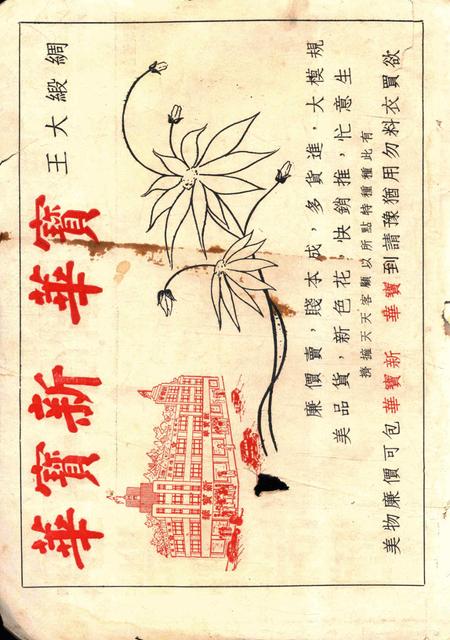 綢緞大王
寶華 新寶華
新寶華
規模大，進貨多，成本賤，賣價廉
生意忙，推銷快，花色新，貨品美
有此種種特點所以顧客天天擁擠
欲買衣料勿用猶豫請到 寶華 新寶華 包可價廉物美